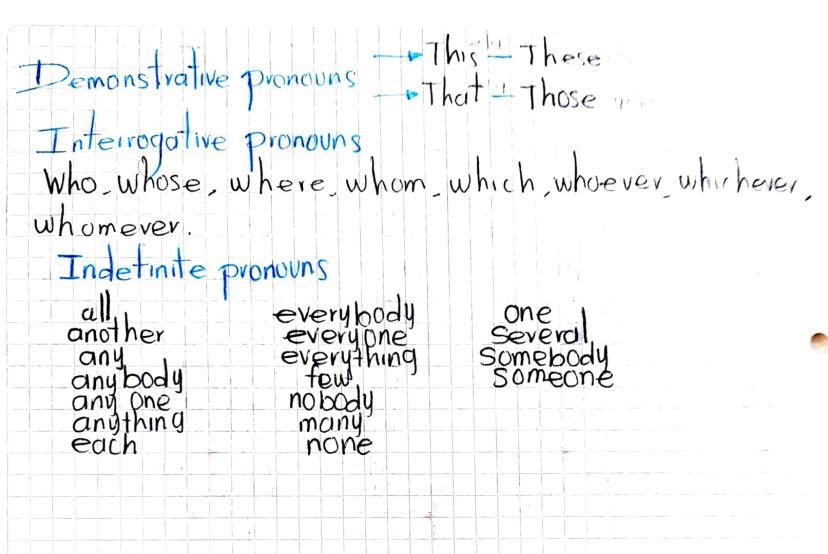 Demonstrative pronouns → This - These
→ That - Those
Interrogative pronouns
Who - whose, where - whom - which, whoever - whichever,
whomever.
Indefinite pronouns
all everybody one
another everyone several
any everything somebody
anybody few someone
any one nobody
anything many
each none